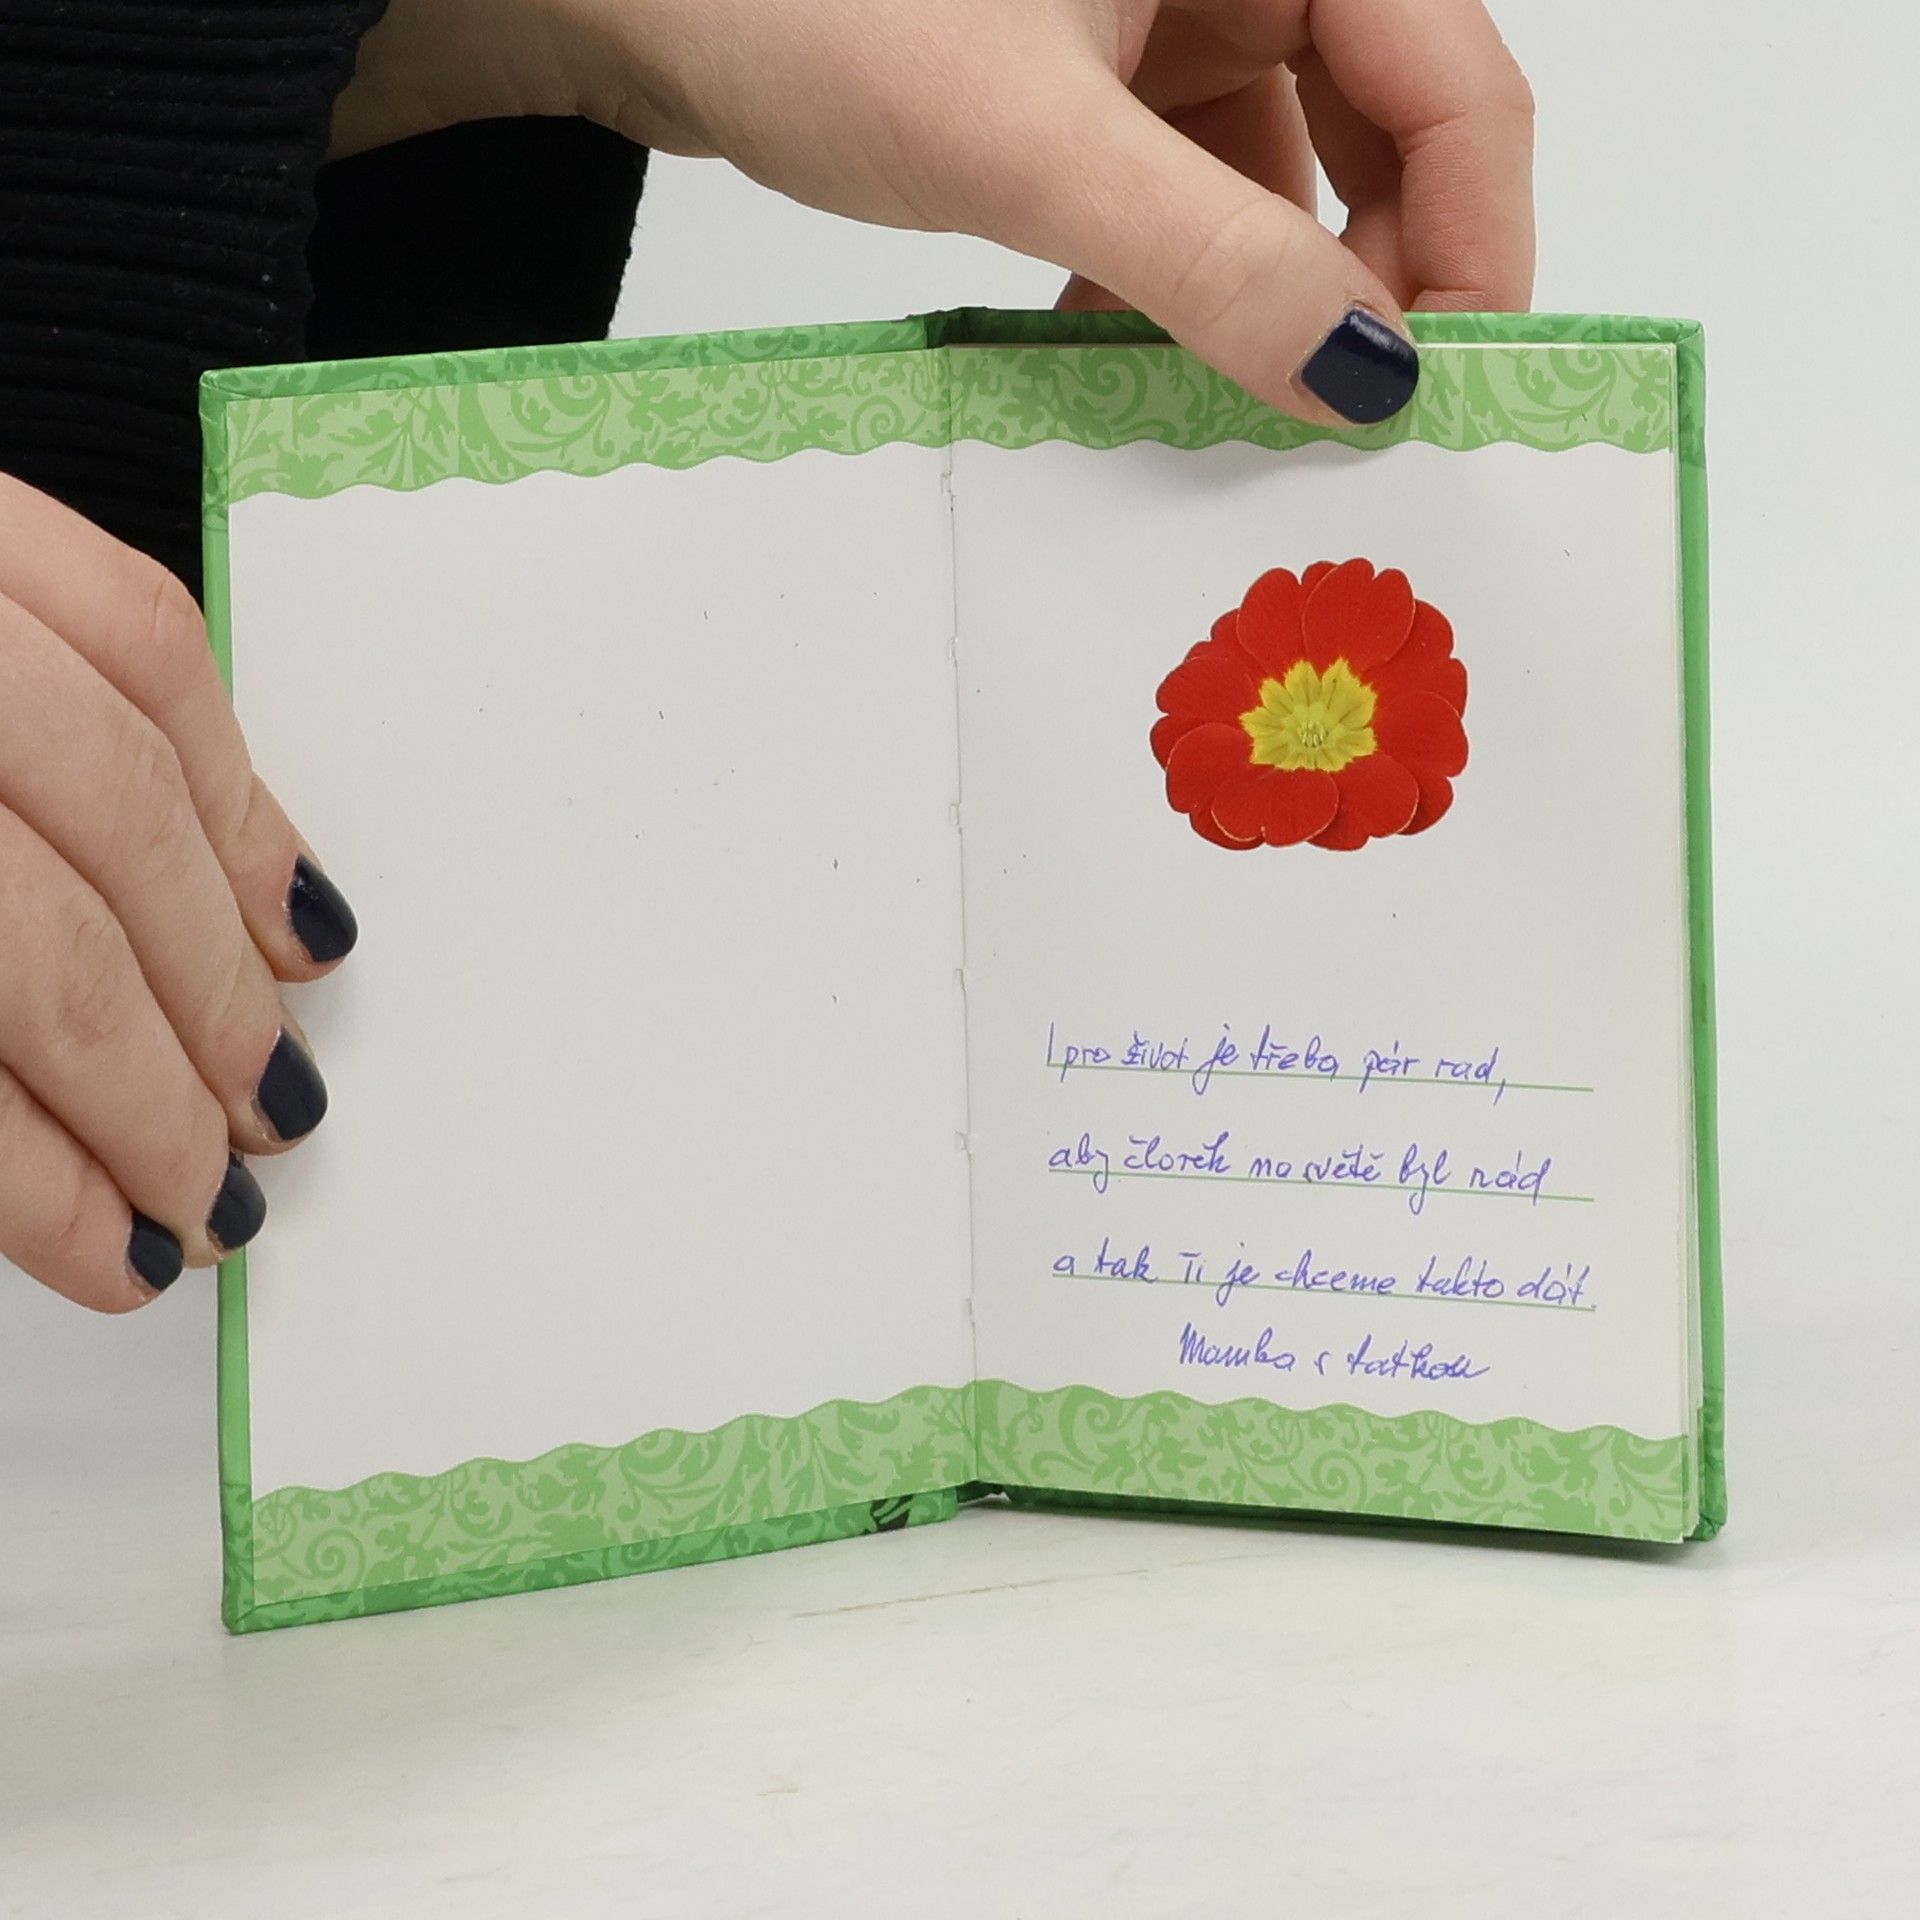 I pro život je třeba pár rad,
aby člověk na světě byl rád
a tak Ti je chceme takto dát.
Mamka s taťkou